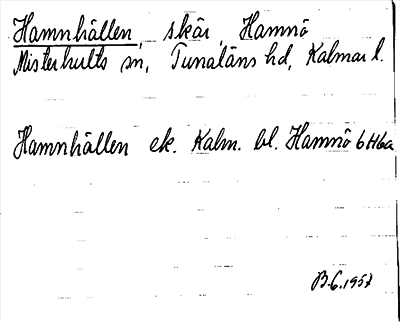 Hamnhällen, skär, Hamnö
Misterhults sn, Tunaläns hd, Kalmar l.
Hamnhällen ek. Kalm. bl. Hamnö 6H6a
B.G. 1957